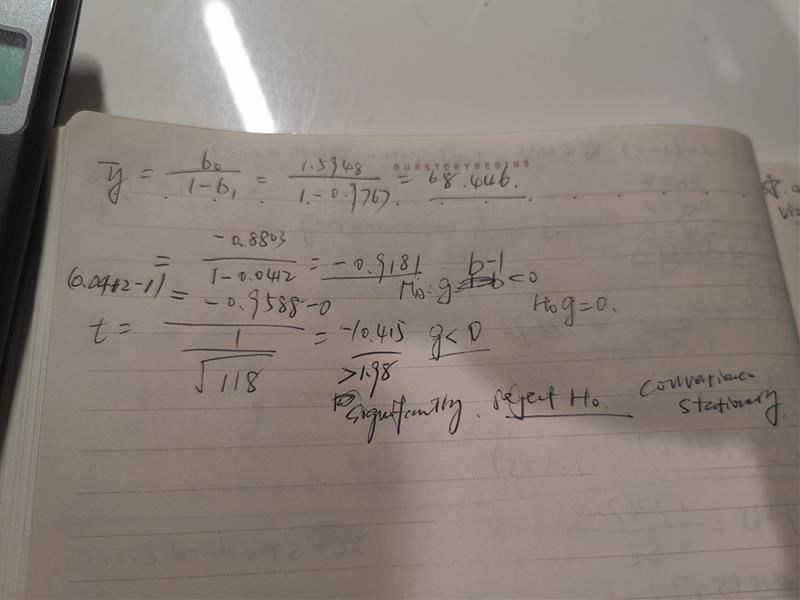 OURSTORYBEGINS
ȳ = b₀ / (1-b₁) = 1.5948 / (1-0.9767) = 68.446.
= -0.8803 / (1-0.0412) = -0.9181
Ha: g = b-1 < 0
H₀ g=0.
(0.0412-1) = -0.9588-0
t = / (1/√118) = -10.415 g<0
>1.98
Significantly. reject H₀. covariance
stationary.